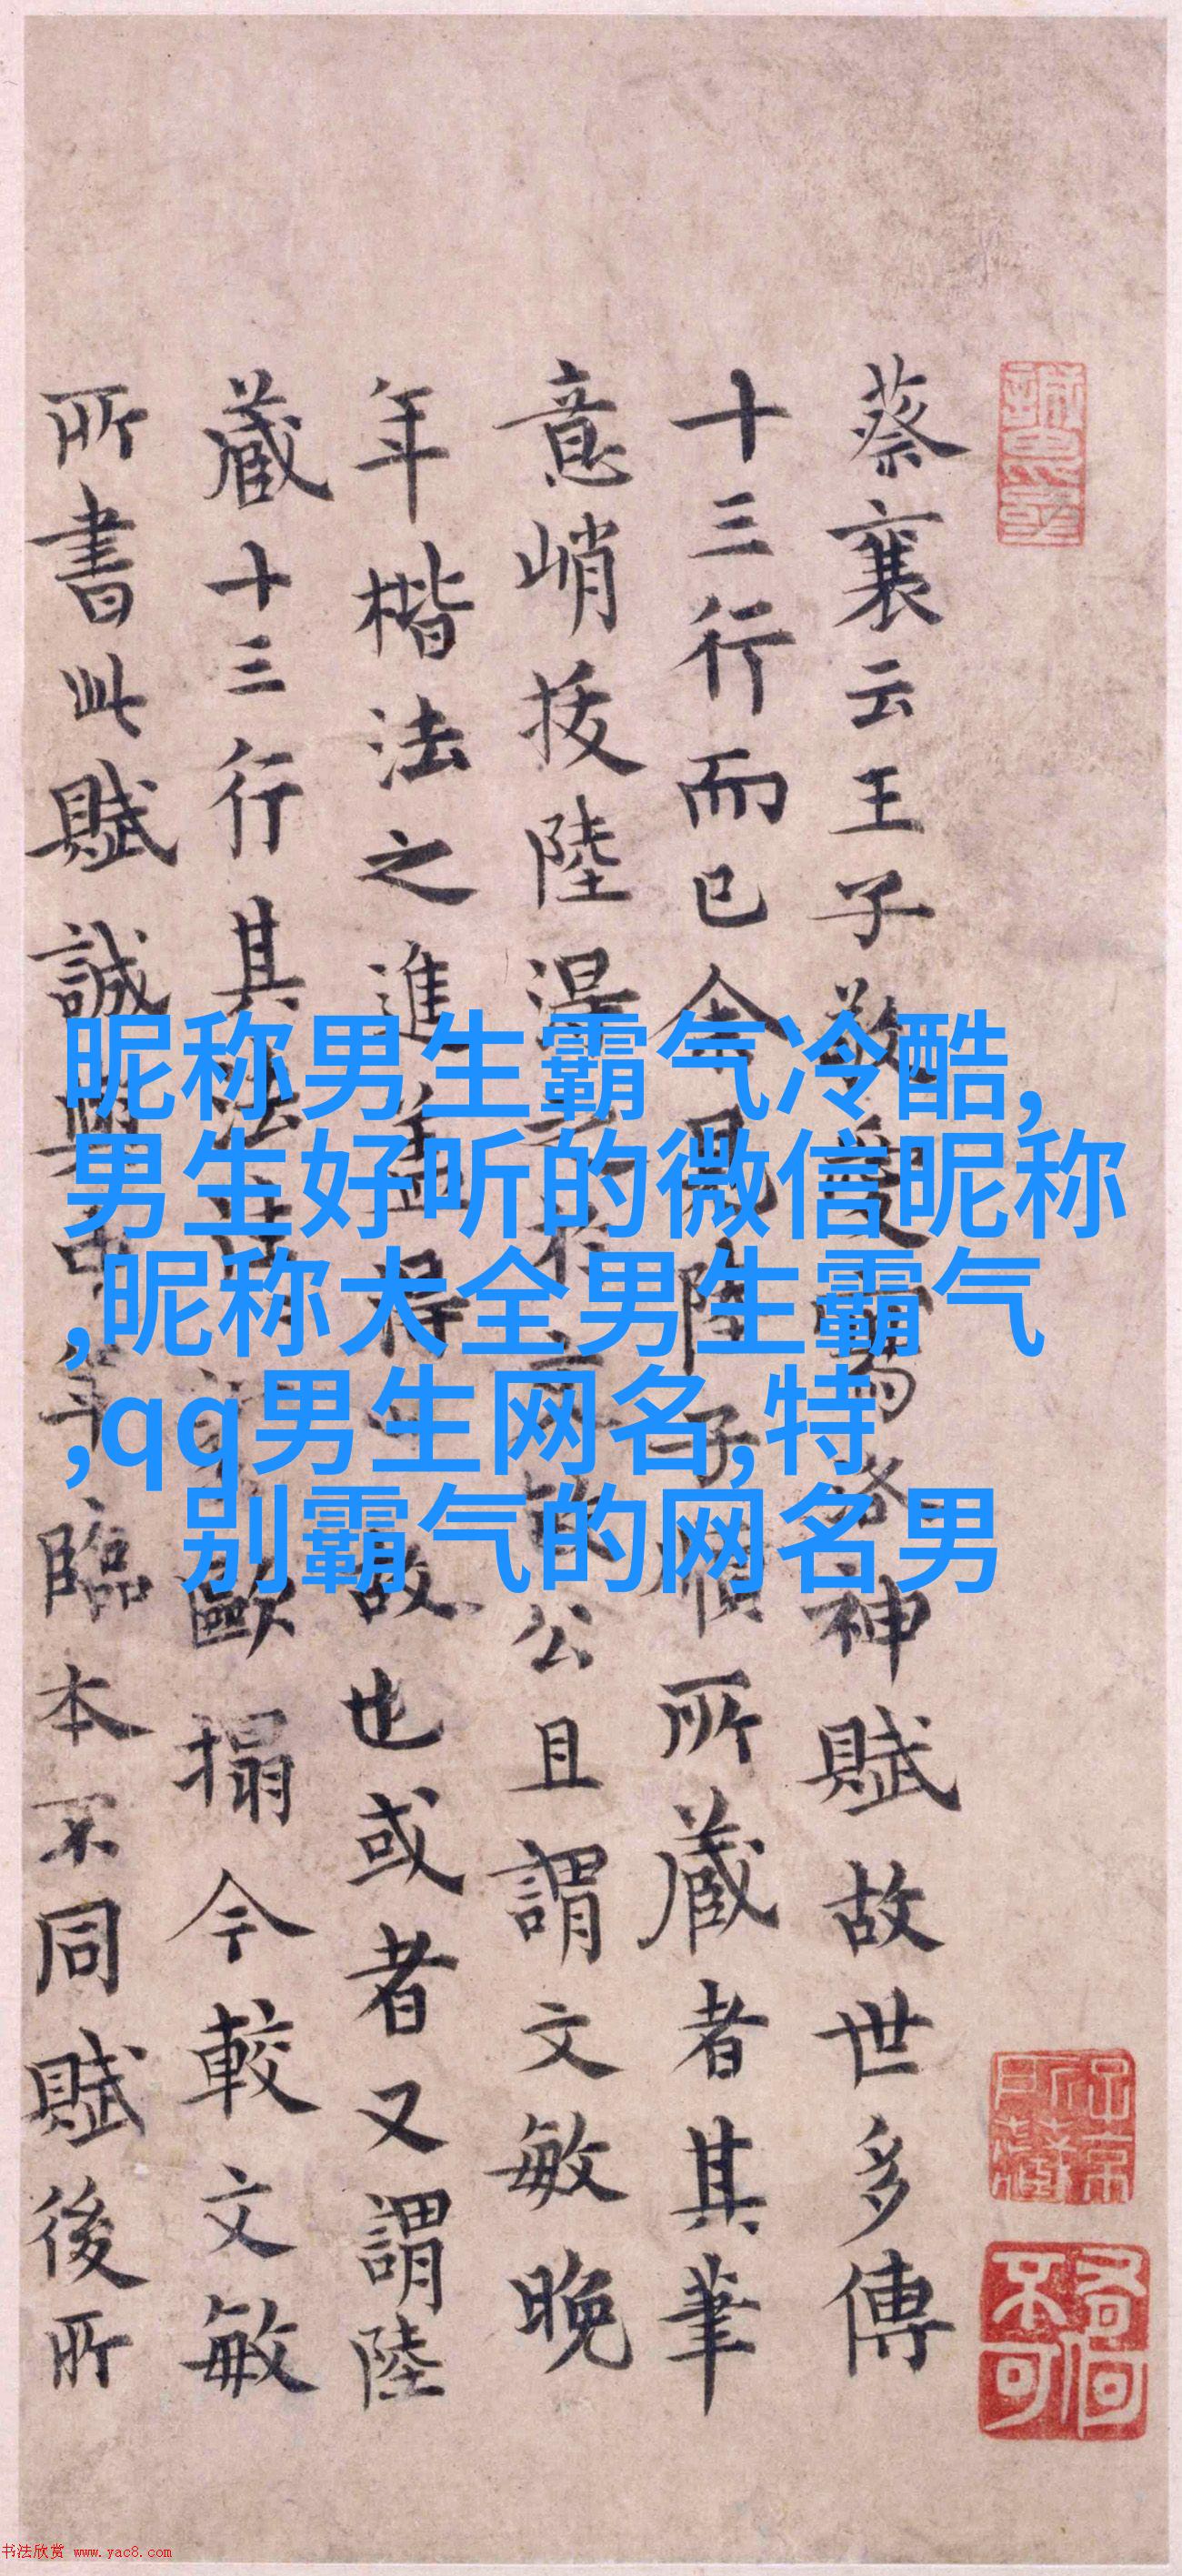 蔡襄云王子敬愛寫洛神賦故世多傳
十三行而已今見陸子順所蔵者其筆
意峭拔陸於文敏公且謂文敏晚
年楷法之進盖得故也或者又謂陸
蔵十三行其法歐搨今較文敏
所書此賦誠與年臨本不同賦後所
昵称男生霸气冷酷,
男生好听的微信昵称
,昵称大全男生霸气
,qq男生网名,特
别霸气的网名男
书法欣赏 www.yac8.com